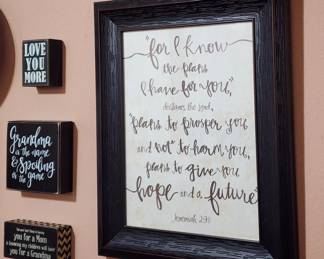 LOVE
YOU
MORE
Grandma
is the name
& Spoiling
is the game
you for a Mom
& knowing my children will have
you for a Grandma
"for I know
the plans
I have for you,"
declares the Lord,
"plans to prosper you
and not to harm you,
plans to give you
hope and a future"
Jeremiah 29:11